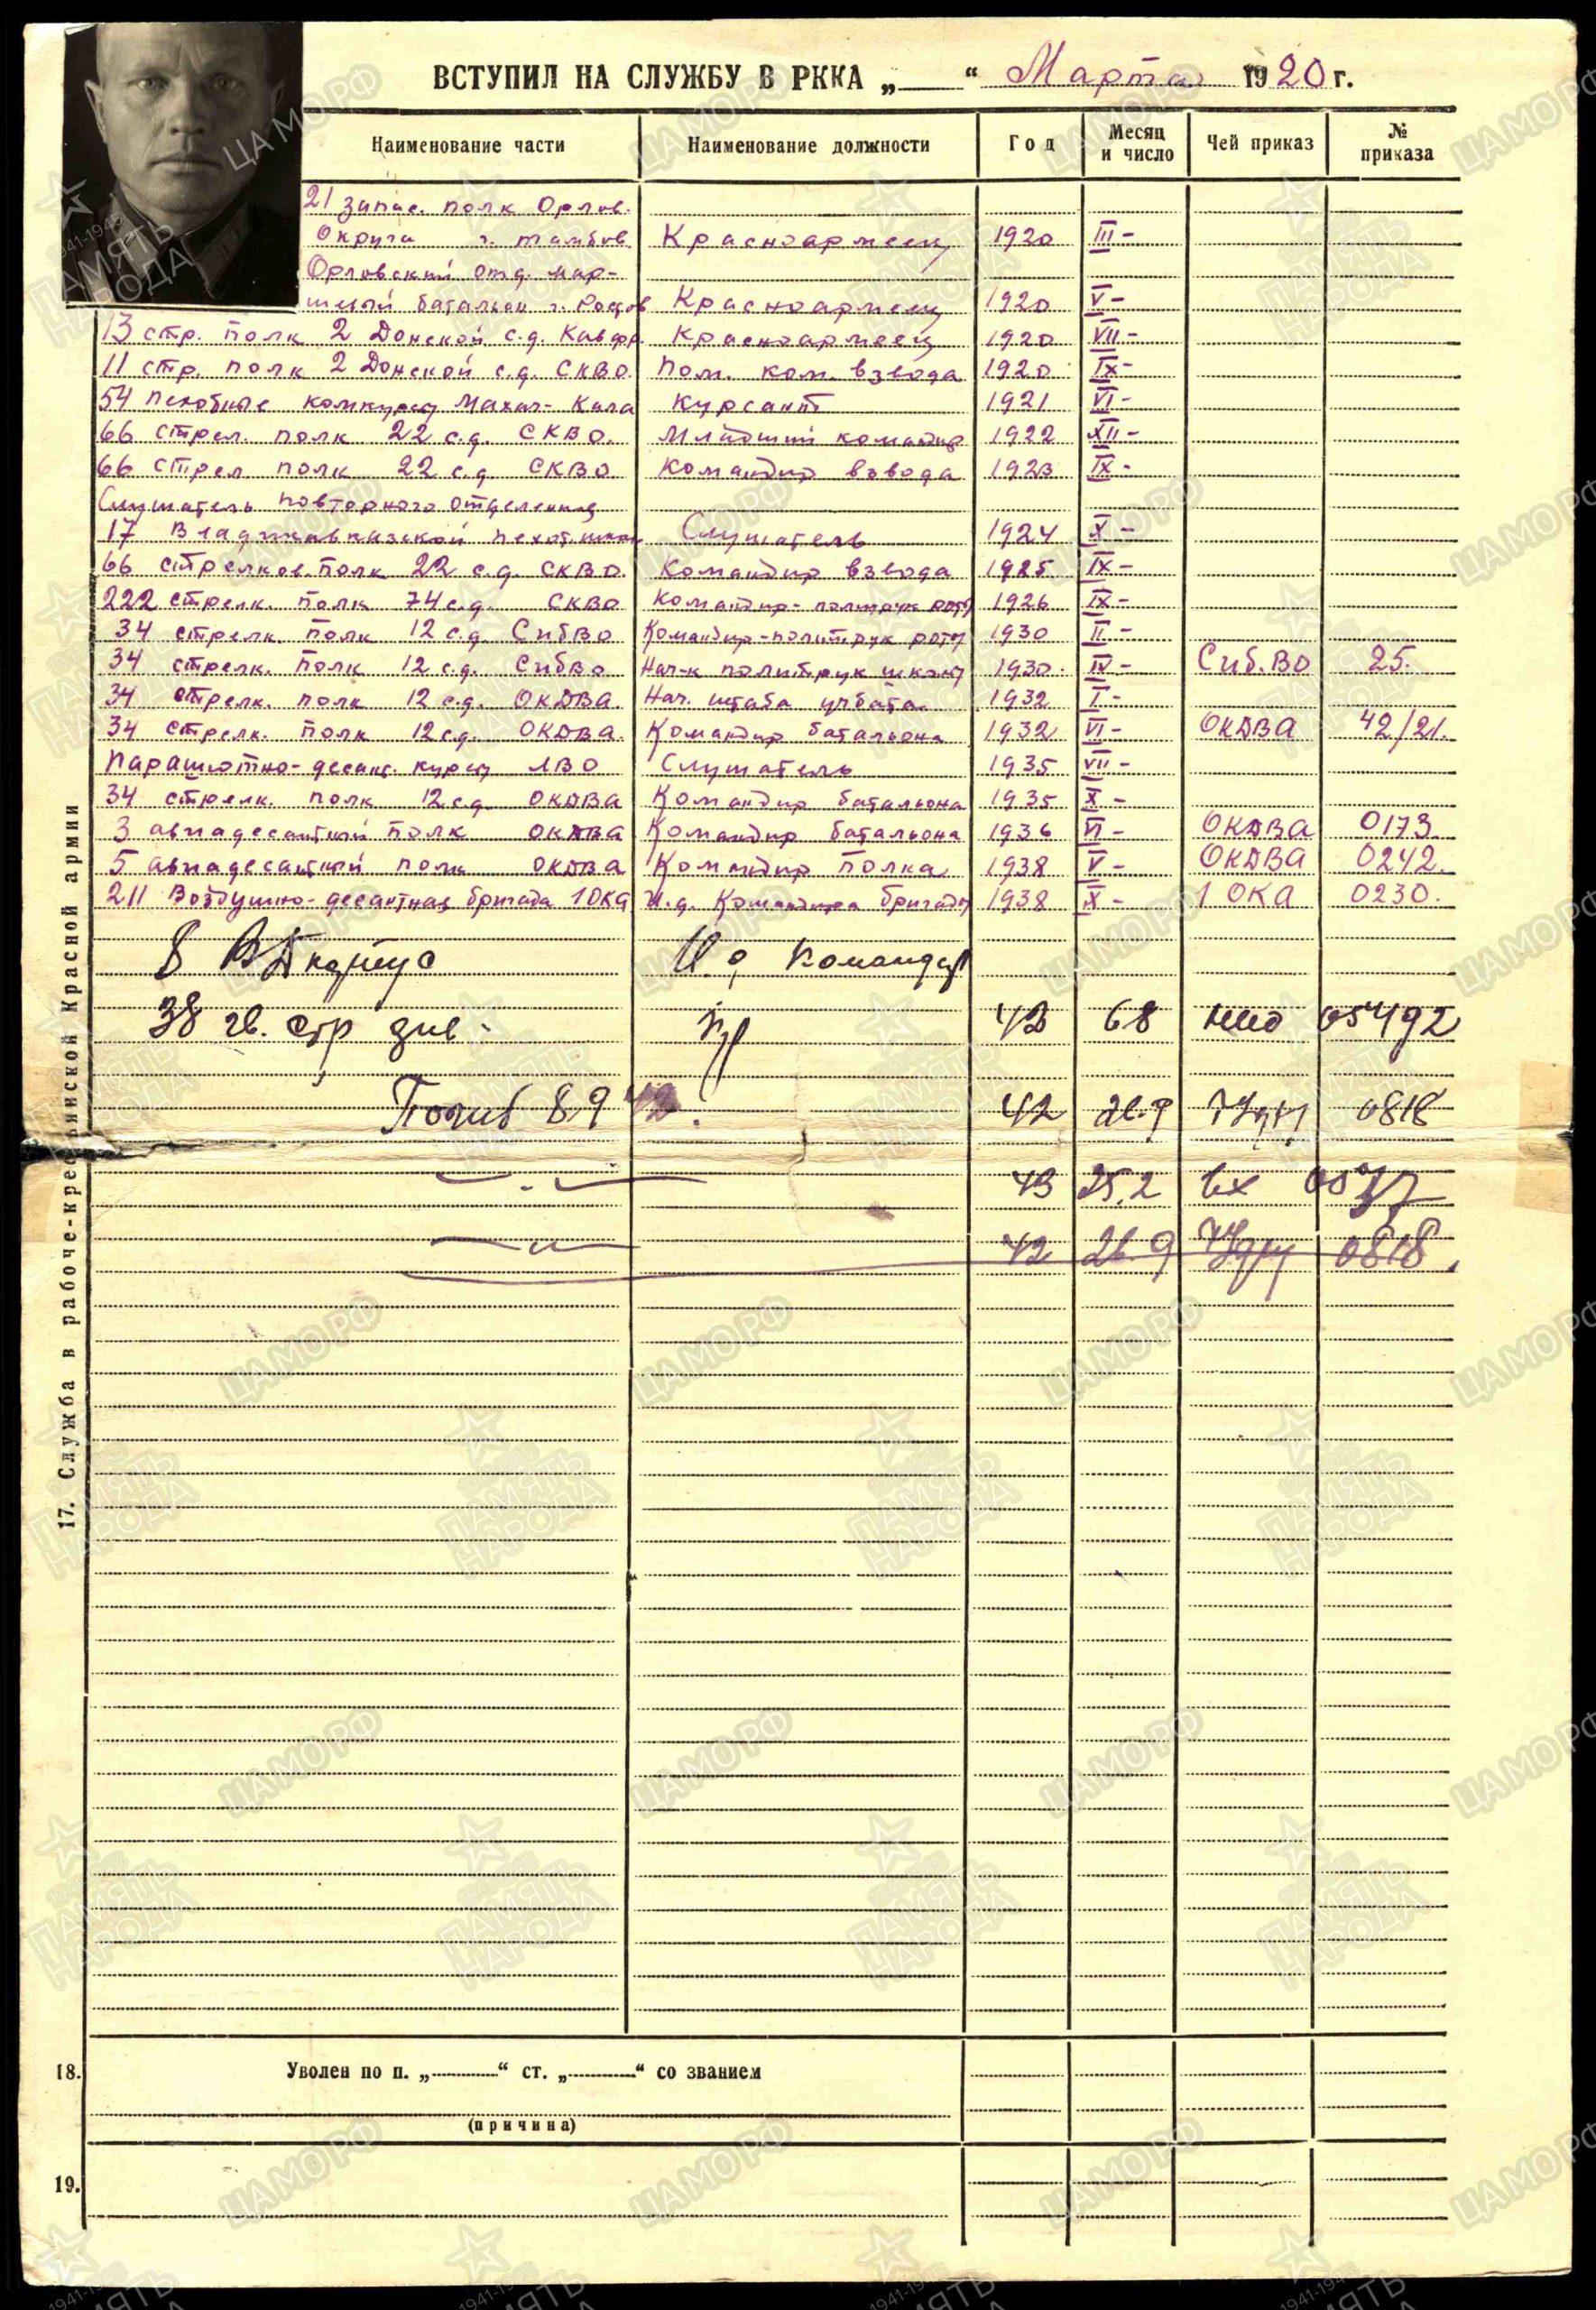 ВСТУПИЛ НА СЛУЖБУ В РККА „___“ Марта 1920 г.
Наименование части Наименование должности Год Месяц и число Чей приказ № приказа
21 запас. полк Орлов.
Округа г. Тамбов Красноармеец 1920 III-
Орловский отд. мар-
шевый батальон г. Ростов Красноармеец 1920 V-
13 стр. полк 2 Донской с.д. Кав фр. Красноармеец 1920 VII-
11 стр. полк 2 Донской с.д. СКВО Пом. ком. взвода 1920 IX-
54 пехотные комкурсы Махач-Кала Курсант 1921 VI-
66 стрел. полк 22 с.д. СКВО. Младший командир 1922 XII-
66 стрел полк 22 с.д. СКВО Командир взвода 1923 IX-
Слушатель повторного отделения
17 Владикавказской пехот. школы Слушатель 1924 X-
66 стрелков. полк 22 с.д. СКВО. Командир взвода 1925 IX-
222 стрелк. полк 74 с.д. СКВО Командир-политрук роты 1926 IX-
34 стрелк. полк 12 с.д. СибВО Командир-политрук роты 1930 II-
34 стрелк. полк 12 с.д. СибВО Нач-к политрук школы 1930. IV- Сиб.ВО 25.
34 стрелк. полк 12 с.д. ОКДВА. Нач. штаба учбата 1932 I-
34 стрелк. полк 12 с.д. ОКДВА. Командир батальона 1932 VI- ОКДВА 42/21.
Парашютно-десант. курсы ЛВО Слушатель 1935 VII-
34 стрелк. полк 12 с.д. ОКДВА Командир батальона 1935 X-
3 авиадесантный полк ОКДВА Командир батальона 1936 VI- ОКДВА 0173
5 авиадесантный полк ОКДВА Командир полка 1938 V- ОКДВА 0242.
211 Воздушно-десантная бригада 1 ОКА И.д. Командира бригады 1938 X- 1 ОКА 0230.
8 ВД корпус И.о Командир
38 гв. стр див. 43 68 нко 05492
Погиб 8 9 42. 42 26.9 0818
—〃— 43 25.2 вх
—〃— 42 26 9 0818.
17. Служба в рабоче-крестьянской Красной армии
18. Уволен по п. „______“ ст. „______“ со званием
(причина)
19.
ЦАМО РФ
ПАМЯТЬ НАРОДА
1941-1945